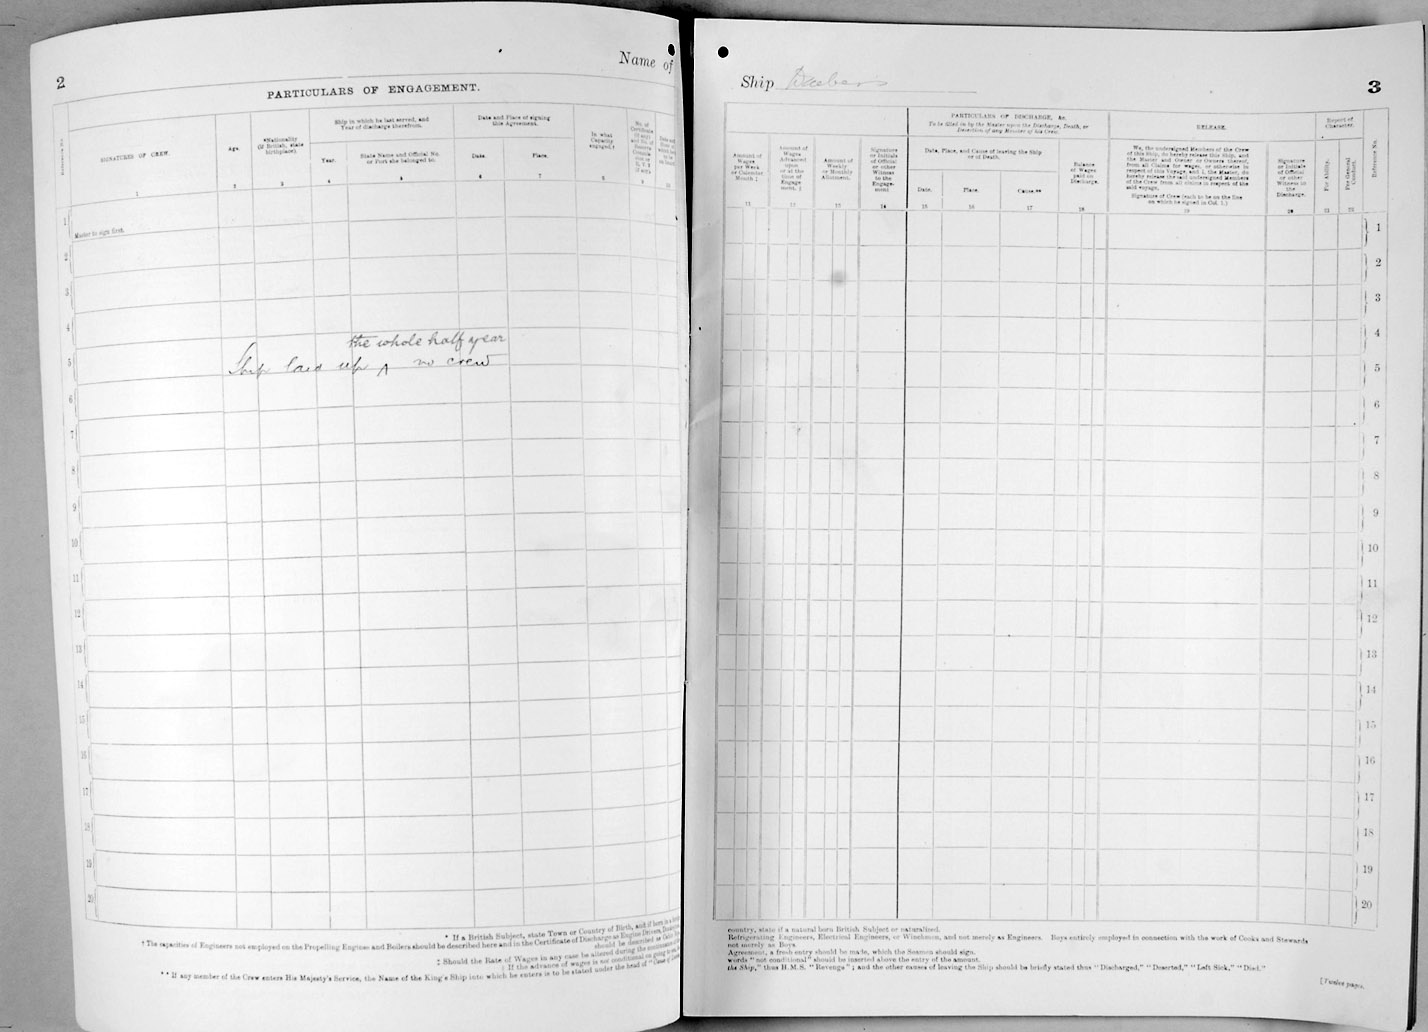 2
Name of
PARTICULARS OF ENGAGEMENT.
SIGNATURES OF CREW.
Age.
*Nationality
(if British, state
birthplace).
Ship in which he last served, and
Year of discharge therefrom.
Year.
State Name and Official No.
or Port she belonged to.
Date and Place of signing
this Agreement.
Date.
Place.
In what
Capacity
engaged.†
1
2
3
4
5
6
7
8
9
10
1
Master to sign first.
2
3
4
the whole half year
5
Ship laid up ∧ no crew
6
7
8
9
10
11
12
13
14
15
16
17
18
19
20
* If a British Subject, state Town or Country of Birth, and if born in a
† The capacities of Engineers not employed on the Propelling Engines and Boilers should be described here and in the Certificate of Discharge as Engine Drivers,
should be described as
‡ Should the Rate of Wages in any case be altered during the continuance
If the advance of wages is not conditional on going to
** If any member of the Crew enters His Majesty's Service, the Name of the King's Ship into which he enters is to be stated under the head of "Cause of
Ship
3
Amount of
Wages
per Week
or Calendar
Month ‡
Amount of
Wages
Advanced
upon
or at the
time of
Engage
ment.
Amount of
Weekly
or Monthly
Allotment.
Signature
or Initials
of Official
or other
Witness
to the
Engage-
ment
PARTICULARS OF DISCHARGE, &c.
To be filled in by the Master upon the Discharge, Death, or
Desertion of any Member of his Crew.
Date, Place, and Cause of leaving the Ship
or of Death.
Date.
Place.
Cause.**
Balance
of Wages
paid on
Discharge.
RELEASE.
We, the undersigned Members of the Crew
of this Ship, do hereby release this Ship, and
the Master and Owner or Owners thereof,
from all Claims for wages, or otherwise in
respect of this Voyage, and I, the Master, do
hereby release the said undersigned Members
of the Crew from all claims in respect of the
said voyage.
Signature of Crew (each to be on the line
on which he signed in Col. 1.)
Signature
or Initials
of Official
or other
Witness to
the
Discharge.
Report of
Character.
For Ability.
For General
Conduct.
Reference No.
11
12
13
14
15
16
17
18
19
20
21
22
1
2
3
4
5
6
7
8
9
10
11
12
13
14
15
16
17
18
19
20
country, state if a natural born British Subject or naturalized.
Refrigerating Engineers, Electrical Engineers, or Winchmen, and not merely as Engineers. Boys entirely employed in connection with the work of Cooks and Stewards
not merely as Boys.
Agreement, a fresh entry should be made, which the Seaman should sign.
words "not conditional" should be inserted above the entry of the amount.
the Ship," thus H.M.S. "Revenge"; and the other causes of leaving the Ship should be briefly stated thus "Discharged," "Deserted," "Left Sick," "Died."
[Twelve pages.